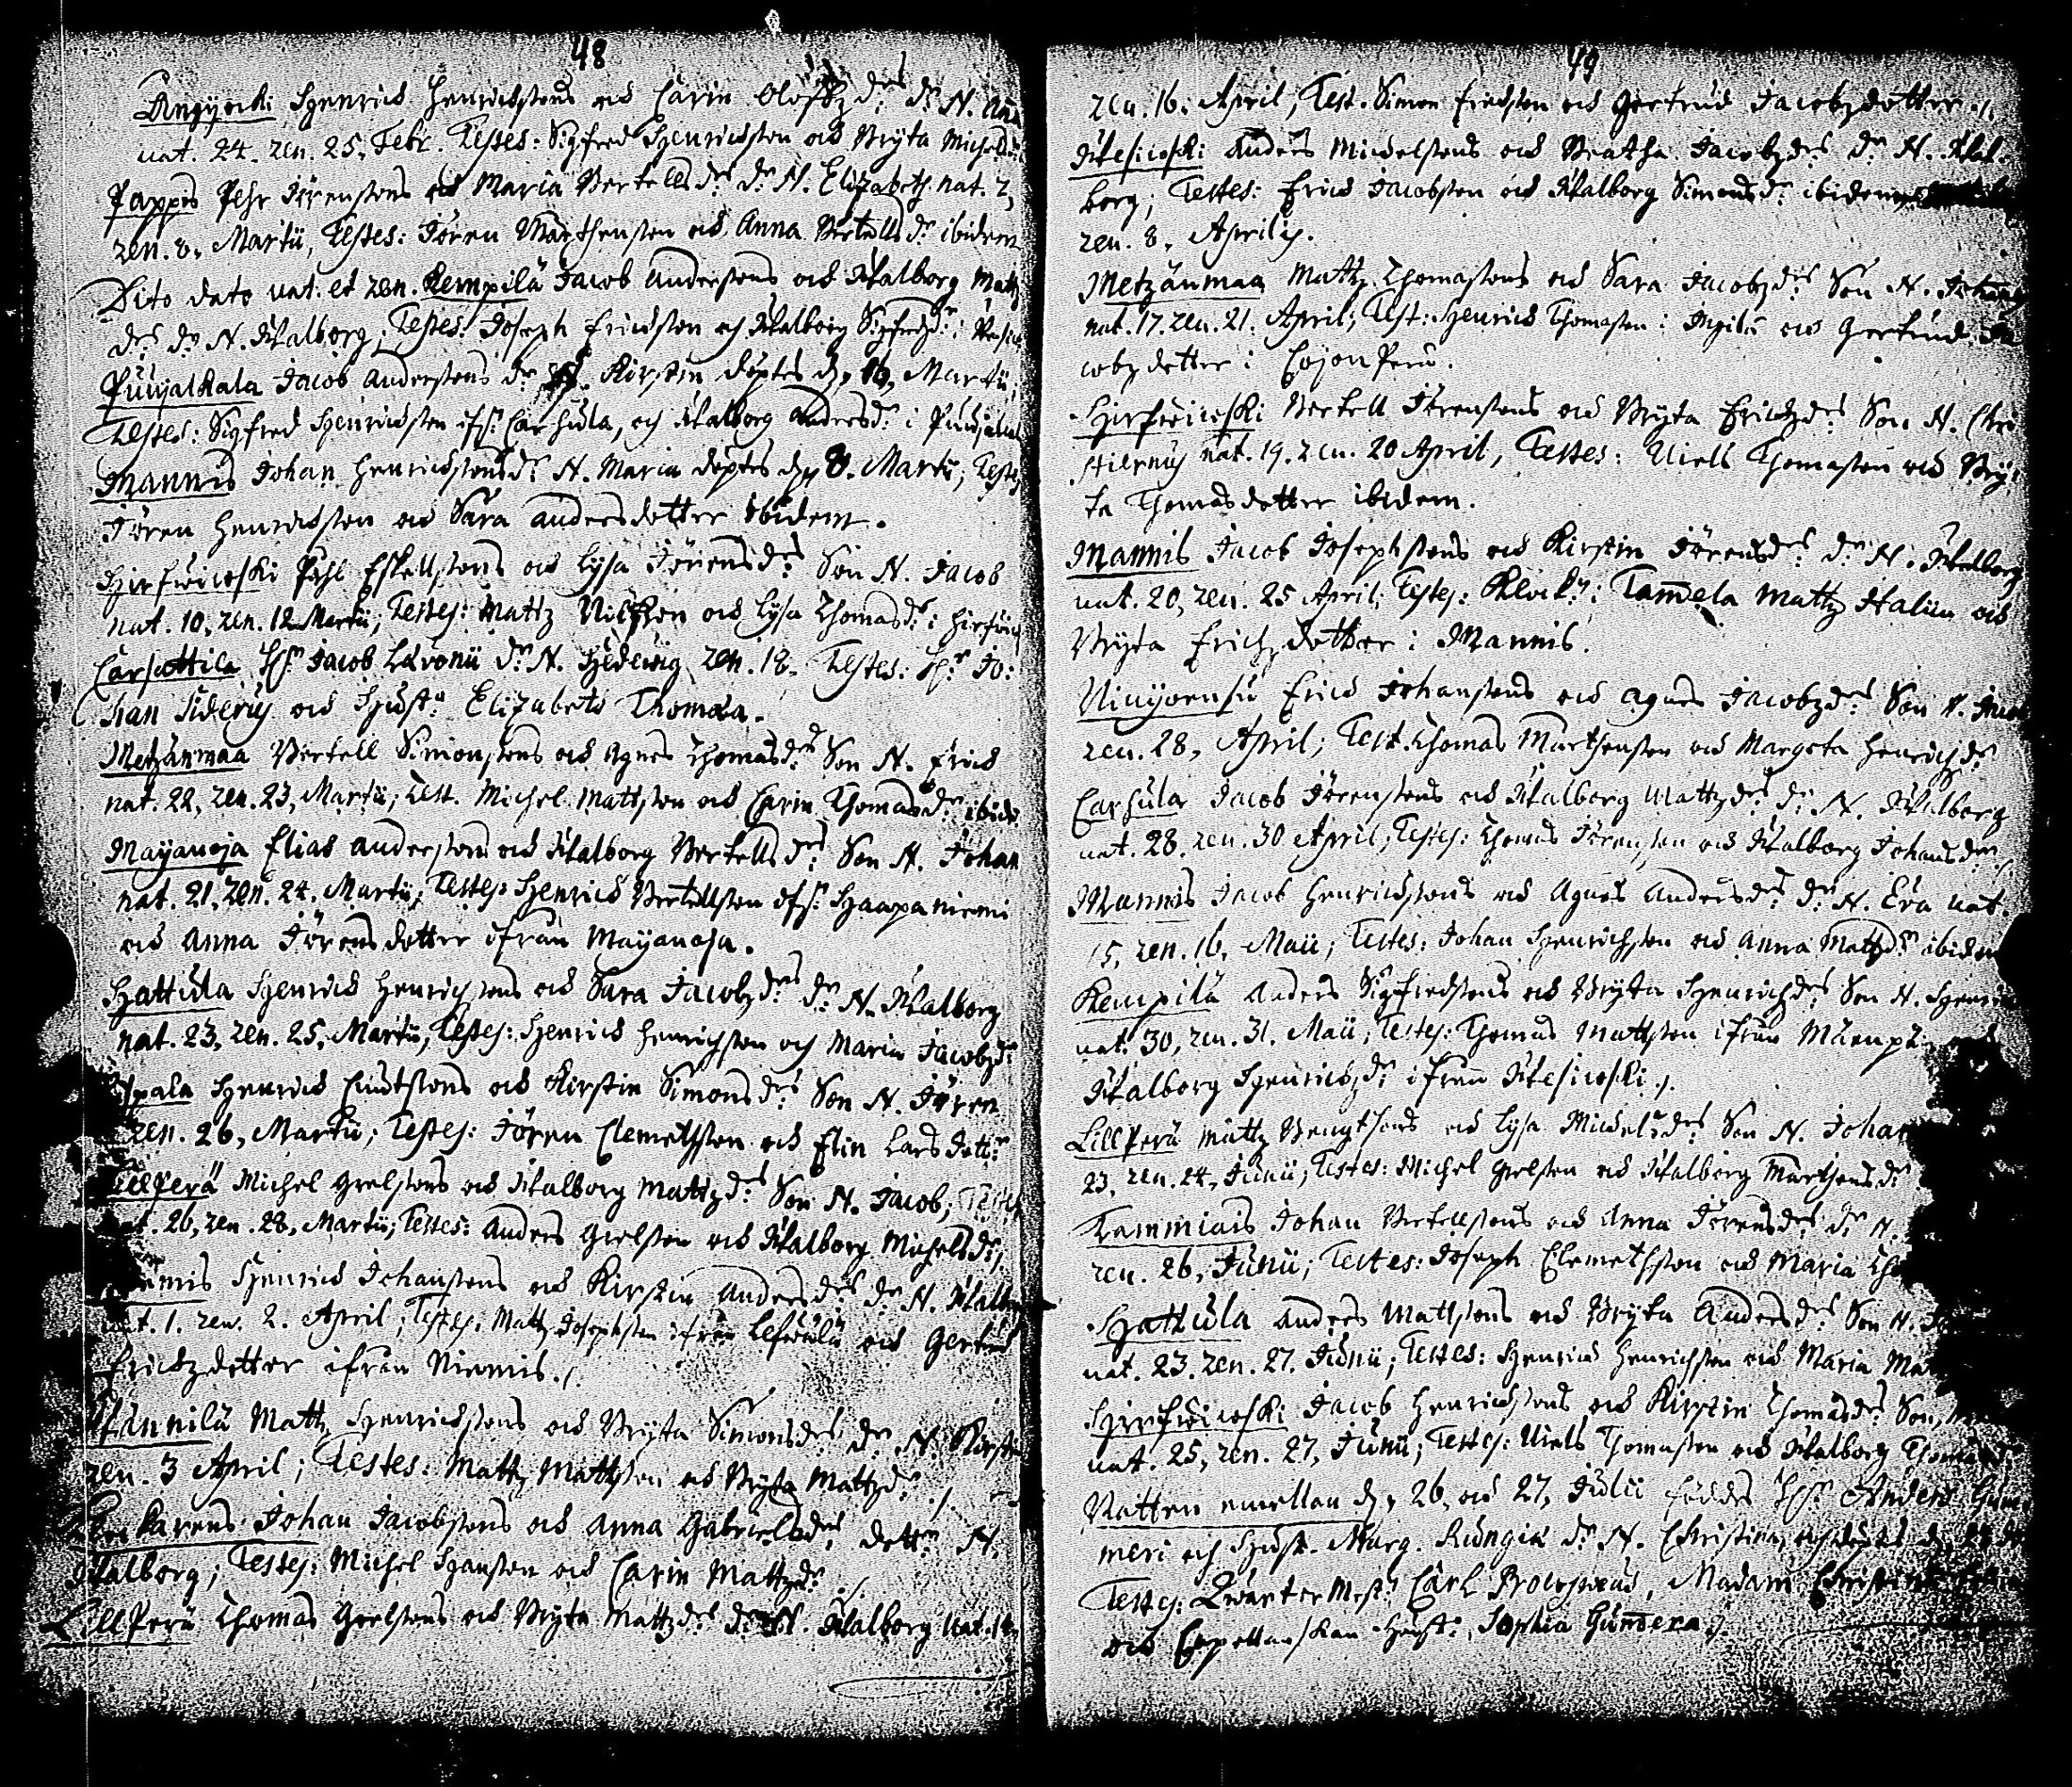 48
Kngijoki Henrich Henrichssons och Carin Olofzdrs dr N. Anna
nat. 24. ren. 25. Febr. Testes: Sigfred Henrichsson och Bryta Michelsdr
Pappos Pehr Jörenssons och Maria Bertellsdrs dr N. Elizabeth nat. 2,
ren. 8. Martii, Testes: Jören Marthensson och Anna Bertellsdr ibidem
Dito dato nat: et ren. Kempilä Jacob Anderssons och Walborg Matz
drs dr N. Walborg; Testes: Joseph Erichsson och Walborg Sigfredzdr i
Puujalkala Jacob Anderssons dr N. Kirstin döptes d. 10, Martii;
Testes: Sigfred Henrichsson ifr: Carhula, och Walborg Andersdr i
Mannis Johan Henrichssons dr N. Maria döptes d. 8. Martii; Testes
Jören Henrichsson och Sara Andersdotter ibidem.
Hirfwijoki Påhl Eskellssons och Lysa Jörensdrs Son N. Jacob
nat. 10, ren. 12 Martii; Testes: Mattz Nilsson och Lysa Thomasdr i Hirfwij
Carhattila Hr Jacob Laronii dr N. Hedewig ren. 18. Testes: Hr Jo:
han Siderus och Hustr Elizabeth Thomæa.
Metzänmaa Bertell Simonssons och Agnes Thomasdrs Son N. Erich
nat. 22, ren. 23, Martii; Test. Michel Mattsson och Carin Thomasdr ibid
Mayanoja Elias Anderssons och Walborg Bertellsdrs Son N. Johan
nat. 21, ren. 24. Martii; Testes: Henrich Bertellsson ifr: Haapaniemi
och Anna Jörensdotter ifrån Mayanoja.
Hattula Henrich Henrichssons och Sara Jacobzdrs dr N. Walborg
nat. 23, ren. 25, Martii, Testes: Henrich Henrichsson och Maria Jacobzdr
Henrich Cnutssons och Kirstin Simonsdrs Son N. Jören
ren. 26, Martii; Testes: Jören Clemetsson och Elin Larsdottr
LillPerä Michel Grelssons och Walborg Mattzdrs Son N. Jacob, Testes
26, ren. 28, Martii; Testes: Anders Grelsson och Walborg Michelsdr,
Henrich Johanssons och Kirstin Andersdrs dr N. Walborg
nat. 1. ren. 2. April; Testes: Mattz Josephsson ifrån Lefwälä och Gertrud
Erichzdotter ifrån Niemis.
Mattz Henrichssons och Bryta Simonsdrs dr N. Kirstin
ren. 3 April; Testes: Mattz Mattsson och Bryta Mattzdr
Johan Jacobssons och Anna Gabrielsdrs, dottr N.
Walborg; Testes: Michel Hansson och Carin Mattzdr
LillPerä Thomas Grelssons och Bryta Mattzdrs dr N. Walborg nat. 14
49
ren. 16. April, Test. Simon Erichsson och Gertrud Jacobzdotter.
Wesijoki Anders Michelssons och Beatha Jacobzdrs dr N. Wal
borg; Testes: Erich Jacobsson och Walborg Simonsdr ibidem
ren. 8, Aprilis.
Metzänmaa Mattz Thomassons och Sara Jacobzdrs Son N. Johan
nat. 17. ren. 21. April; Test: Henrich Thomasson i och Gertrud Ja
cobzdotter i CojonPerä.
Hirfwijoki Bertell Jörenssons och Bryta Erichzdrs Son N. Chri
stiernus nat. 19. ren. 20 April, Testes: Niels Thomasson och Bry
ta Thomasdotter ibidem.
Mannis Jacob Josephssons och Kirstin Jörensdrs dr N. Walborg
nat. 20, ren. 25 April; Testes: Klock: i Tammela Mattz Walin och
Bryta Erichzdotter i Mannis.
Niinijoensu Erich Johanssons och Agnes Jacobzdrs Son N.
ren. 28, April; Test. Thomas Marthensson och Margeta Henrichzdr
Carhula Jacob Jörenssons och Walborg Mattzdrs dr N. Walborg
nat. 28. ren. 30 April; Testes: Thomas Jörensson och Walborg Johansdr
Mannis Jacob Henrichssons och Agnes Andersdrs dr N. Eva nat.
15, ren. 16, Maii; Testes: Johan Henrichsson och Anna Mattzdr ibidem
Kempilä Anders Sigfredssons och Bryta Henrichzdrs Son N. Henrich
nat. 30, ren. 31. Maii; Testes: Thomas Mattsson ifrån
Walborg Henrichzdr ifrån Wesijoki.
LillPerä Mattz Bengtsons och Lysa Michelsdrs Son N. Johan
23, ren. 24, Junii; Testes: Michel Grelsson och Walborg Marthensdr
Tammiais Johan Bertellssons och Anna Jörensdrs dr N.
ren. 26, Junii; Testes: Joseph Clemetsson och Maria
Hattula Anders Mattssons och Bryta Andersdrs Son N.
nat. 23. ren. 27. Junii; Testes: Henrich Henrichsson och Maria
Hirfwijoki Jacob Henrichssons och Kirstin Thomasdrs Son,
nat. 25, ren. 27, Junii; Testes: Niels Thomasson och Walborg Thomasdr
Natten emellan d. 26, och 27, Julii föddes Hr Anders Gum
meri och Hust. Marg. Rungia dr N. Christina, och döptes d.
Testes: Qwartermest: Carl Brochæus, Madam Christina
och Capellanskan Hust: Sophia Gummera.